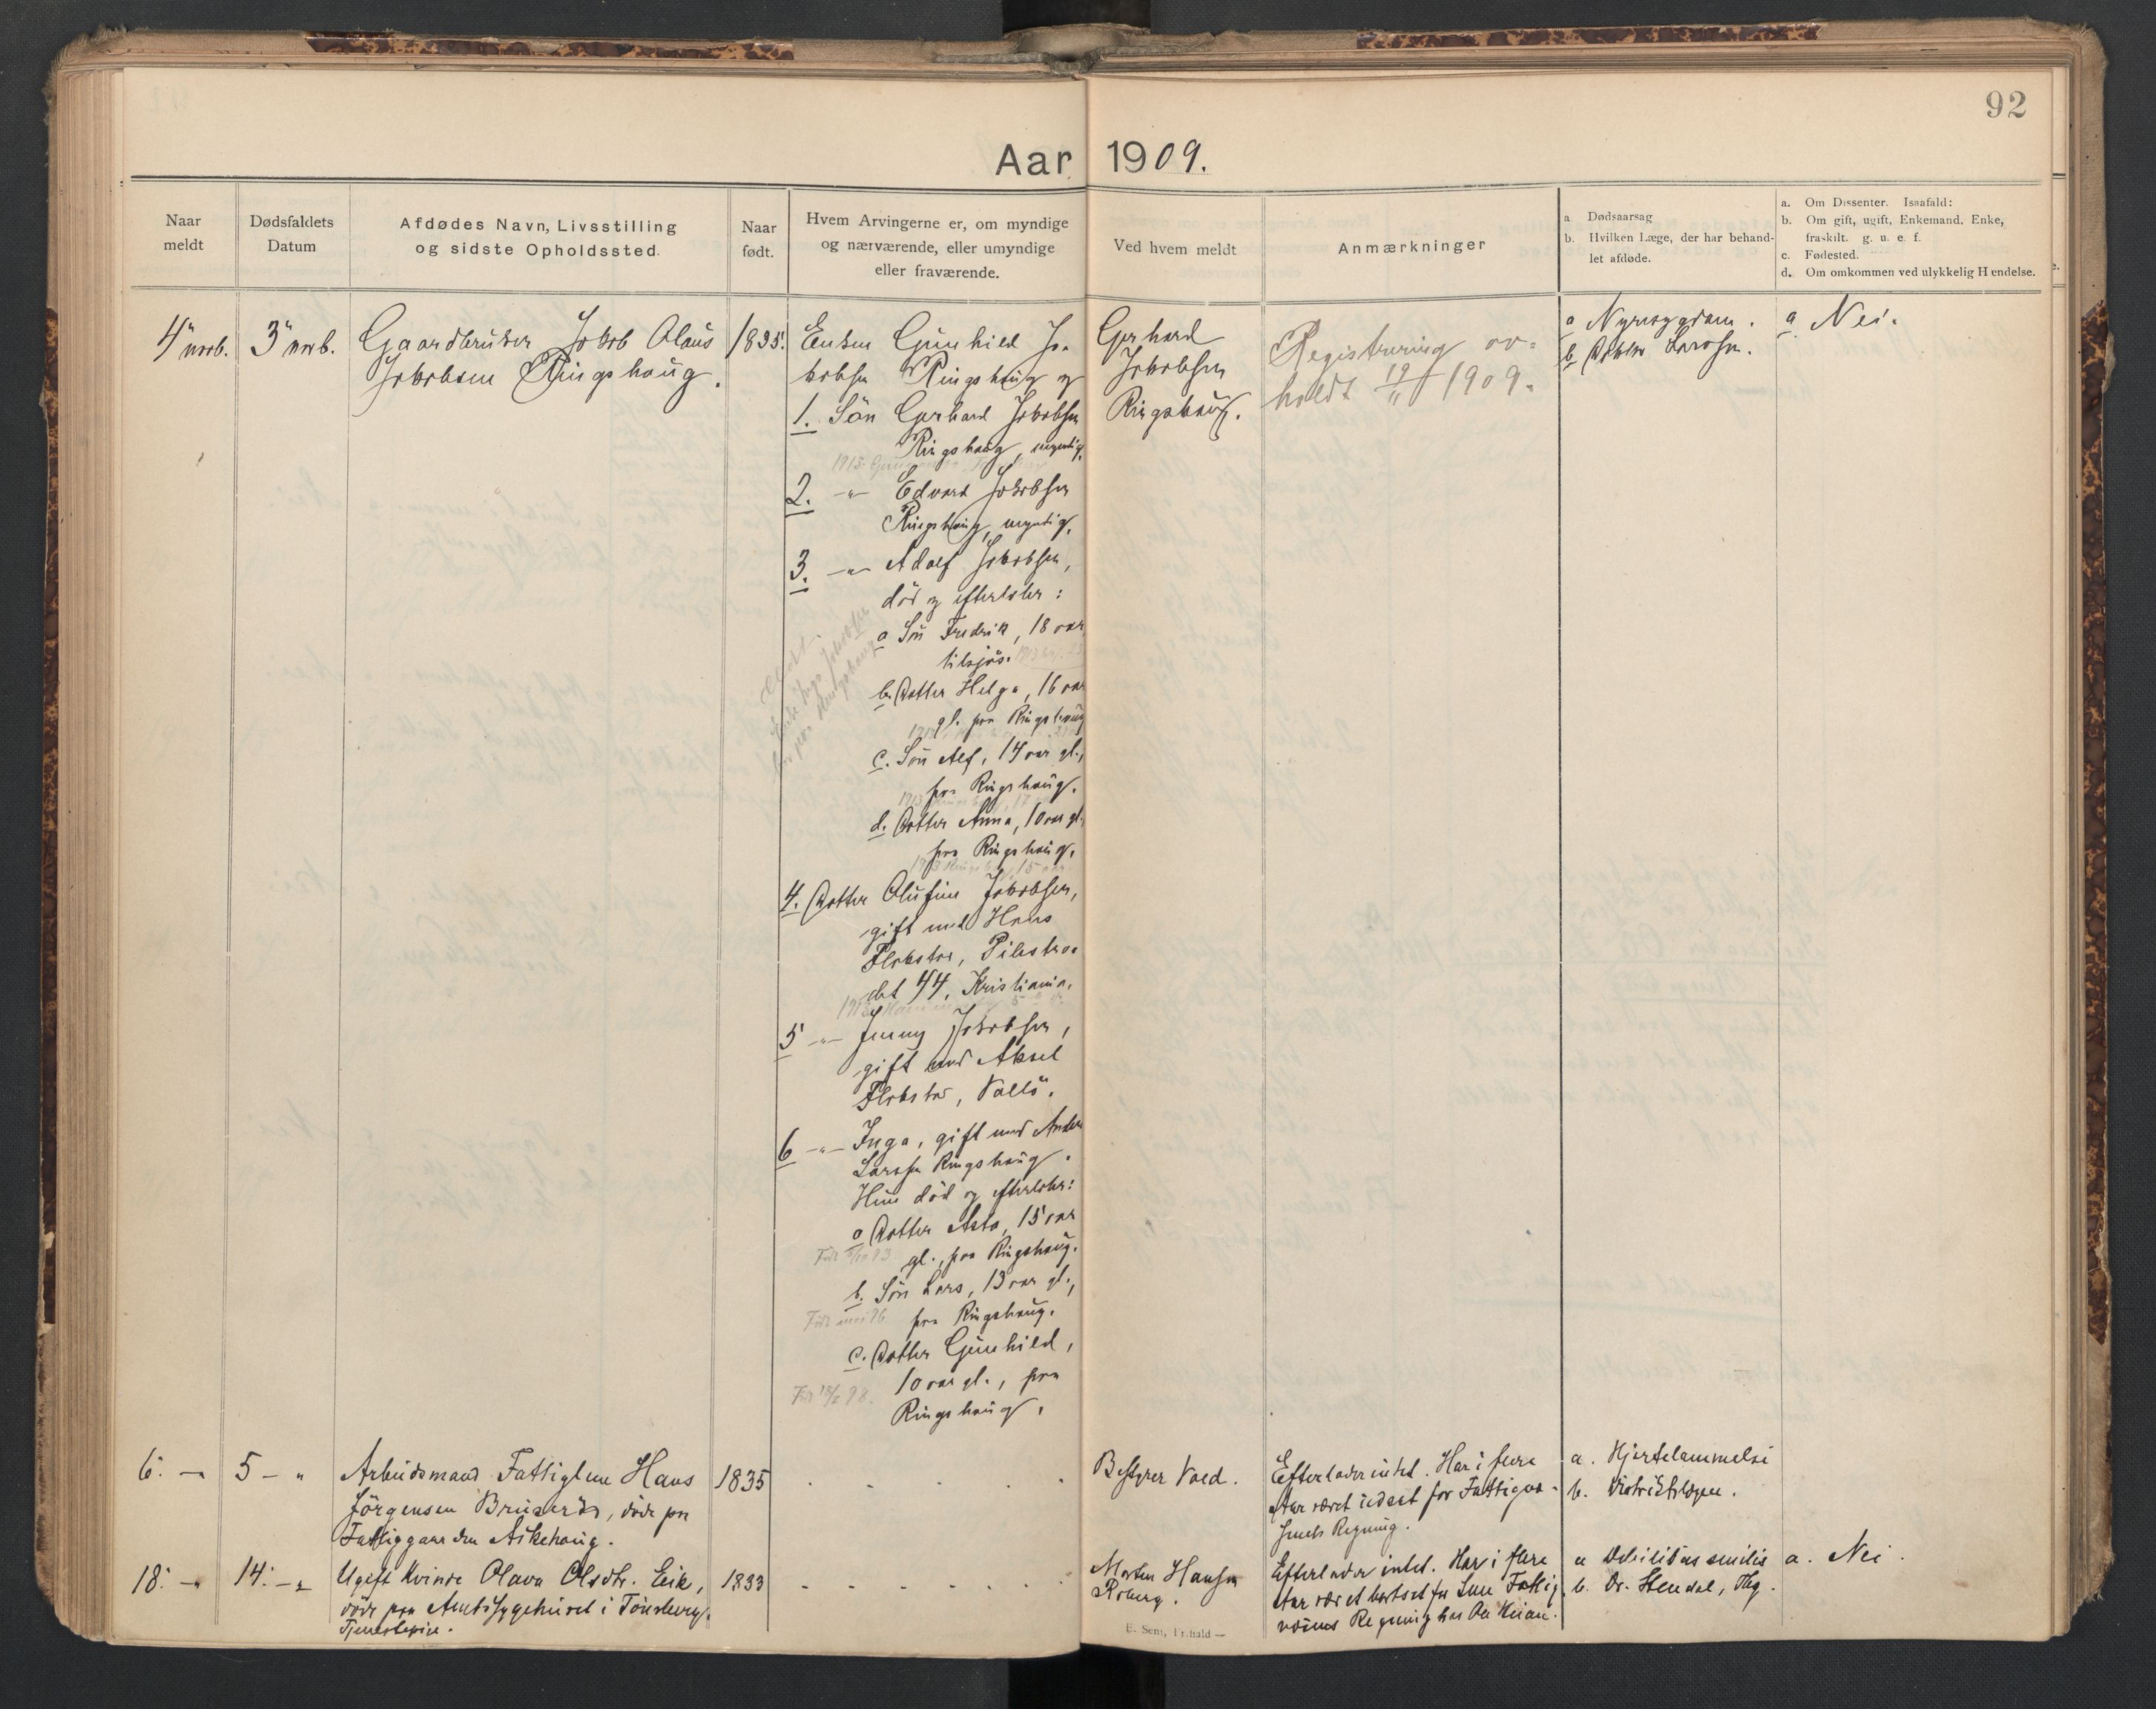 92
Aar 1909.
Naar meldt
Dødsfaldets Datum
Afdødes Navn, Livsstilling og sidste Opholdssted.
Naar født.
Hvem Arvingerne er, om myndige og nærværende, eller umyndige eller fraværende.
Ved hvem meldt
Anmærkninger
a Dødsaarsag
b. Hvilken Læge, der har behandlet afdøde.
a. Om Dissenter. Isaafald:
b. Om gift, ugift, Enkemand, Enke, fraskilt. g. u. e. f.
c. Fødested.
d. Om omkommen ved ulykkelig Hendelse.
4 novb.
3 novb.
Gaardbruker Jakob Olaus
Jakobsen Ringshaug.
1835.
Enken Gunhild Ja-
kobsen Ringshaug og
1. Sön Gerhard Jakobsen
Ringshaug, myndig.
2. -"- Edvard Jakobsen
Ringshaug, myndig.
3. -"- Adolf Jakobsen,
död og efterlater:
a Sön Fredrik, 18 aar
tilsjös.
b. Datter Helga, 16 aar
gl. paa Ringshaug
c. Sön Alf, 14 aar gl.,
paa Ringshaug.
d. Datter Anna, 10 aar gl.
paa Ringshaug.
4. Datter Olufine Jakobsen,
gift med Hans
Flakstad, Pilestræ-
det 44, Kristiania.
5 -"- Jenny Jakobsen,
gift med Aksel
Flakstad, Vallö.
6 -"- Inga, gift med Anders
Larsen Ringshaug.
Hun död og efterlater:
a Datter Asta, 15 aar
gl., paa Ringshaug.
b. Sön Lars, 13 aar gl.,
paa Ringshaug.
c. Datter Gunhild,
10 aar gl., paa
Ringshaug.
Gerhard
Jakobsen
Ringshaug.
Registrering av-
holdt 19/11 1909.
a Nyresygdom.
b Doktor Larsen.
a Nei.
6. -"
5 - "
Arbeidsmand Fattiglem Hans
Jörgensen Bruseröd, döde paa
Fattiggaarden Askehaug.
1835
Bestyrer Vold.
Efterlader intet. Har i flere
Aar været udsat for Fattigvæ-
senets Regning.
a. Hjertelammelse
b. Distriktslægen.
18. -"
14. -"
Ugift Kvinde Olava Olsdtr. Eik,
döde paa Amtssygehuset i Tönsberg.
Tjenestepige.
1833
Morten Hansen
Roberg.
Efterlader intet. Har i flere
Aar været bortsat for Sem Fattig
væsens Regning hos
a Debilitas senilis
b. Dr. Stendal, Tbg.
a. Nei.
E. Sem, Fr.hald —